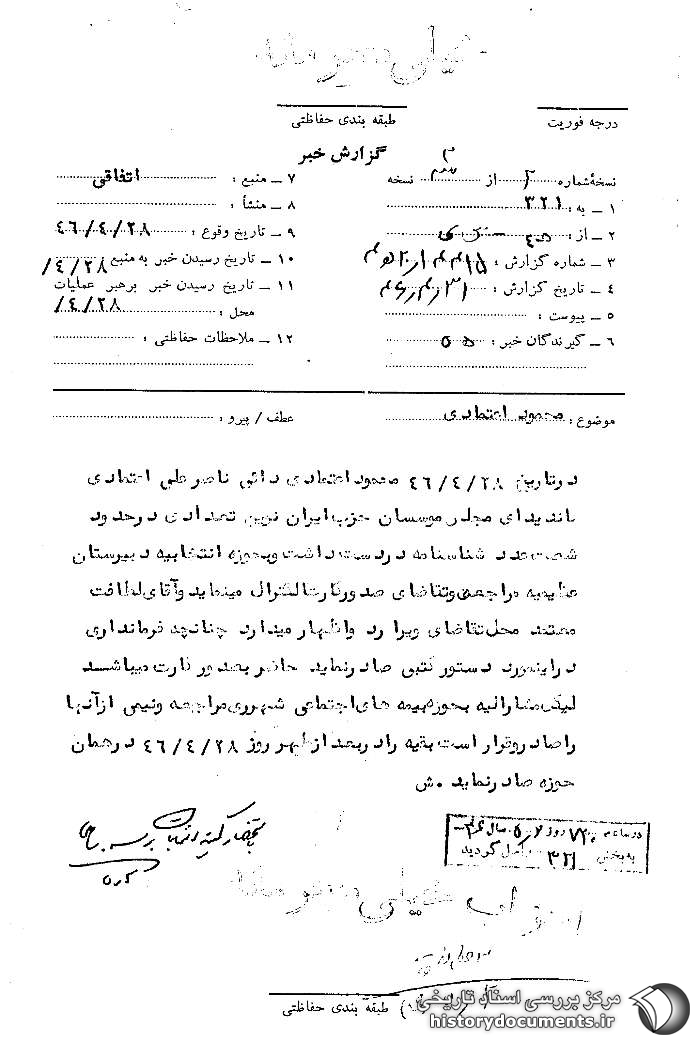 خیلی محرمانه
درجه فوریت
طبقه بندی حفاظتی
گزارش خبر
نسخهٔ شماره ۲ از نسخه
۱ ـ به : ۳۲۱
۲ ـ از :
۳ ـ شماره گزارش :
۴ ـ تاریخ گزارش :
۵ ـ پیوست :
۶ ـ گیرندگان خبر :
۷ ـ منبع : اتفاقی
۸ ـ منشأ :
۹ ـ تاریخ وقوع : ۴۶/۴/۲۸
۱۰ ـ تاریخ رسیدن خبر به منبع ۴/۲۸/
۱۱ ـ تاریخ رسیدن خبر برهبر عملیات
محل : ۴/۲۸/
۱۲ ـ ملاحظات حفاظتی :
موضوع : محمود اعتمادی
عطف / پیرو :
درتاریخ ۴۶/۴/۲۸ محمود اعتمادی دائی ناصرعلی اعتمادی
کاندیدای مجلس موسسان حزب ایران نوین تعدادی درحدود
شصت عدد شناسنامه دردست داشت وبحوزه انتخابیه دبیرستان
مراجعه وتقاضای صدور کارت الکترال مینماید وآقای لطافت
معتمد محل تقاضای ویرا رد واظهار میدارد چنانچه فرمانداری
دراینمورد دستور کتبی صادرنماید حاضر بصدور کارت میباشد
لیکن مشارالیه بحوزه بیمه های اجتماعی شهرری مراجعه ونیمی ازآنها
راصادر وقرار است بقیه رادربعدازظهر روز ۴۶/۴/۲۸ درهمان
حوزه صادرنماید . ش
روز سال
به بخش ۳۲۱ واصل گردید
خیلی محرمانه
طبقه بندی حفاظتی
مرکز بررسی اسناد تاریخی
historydocuments.ir